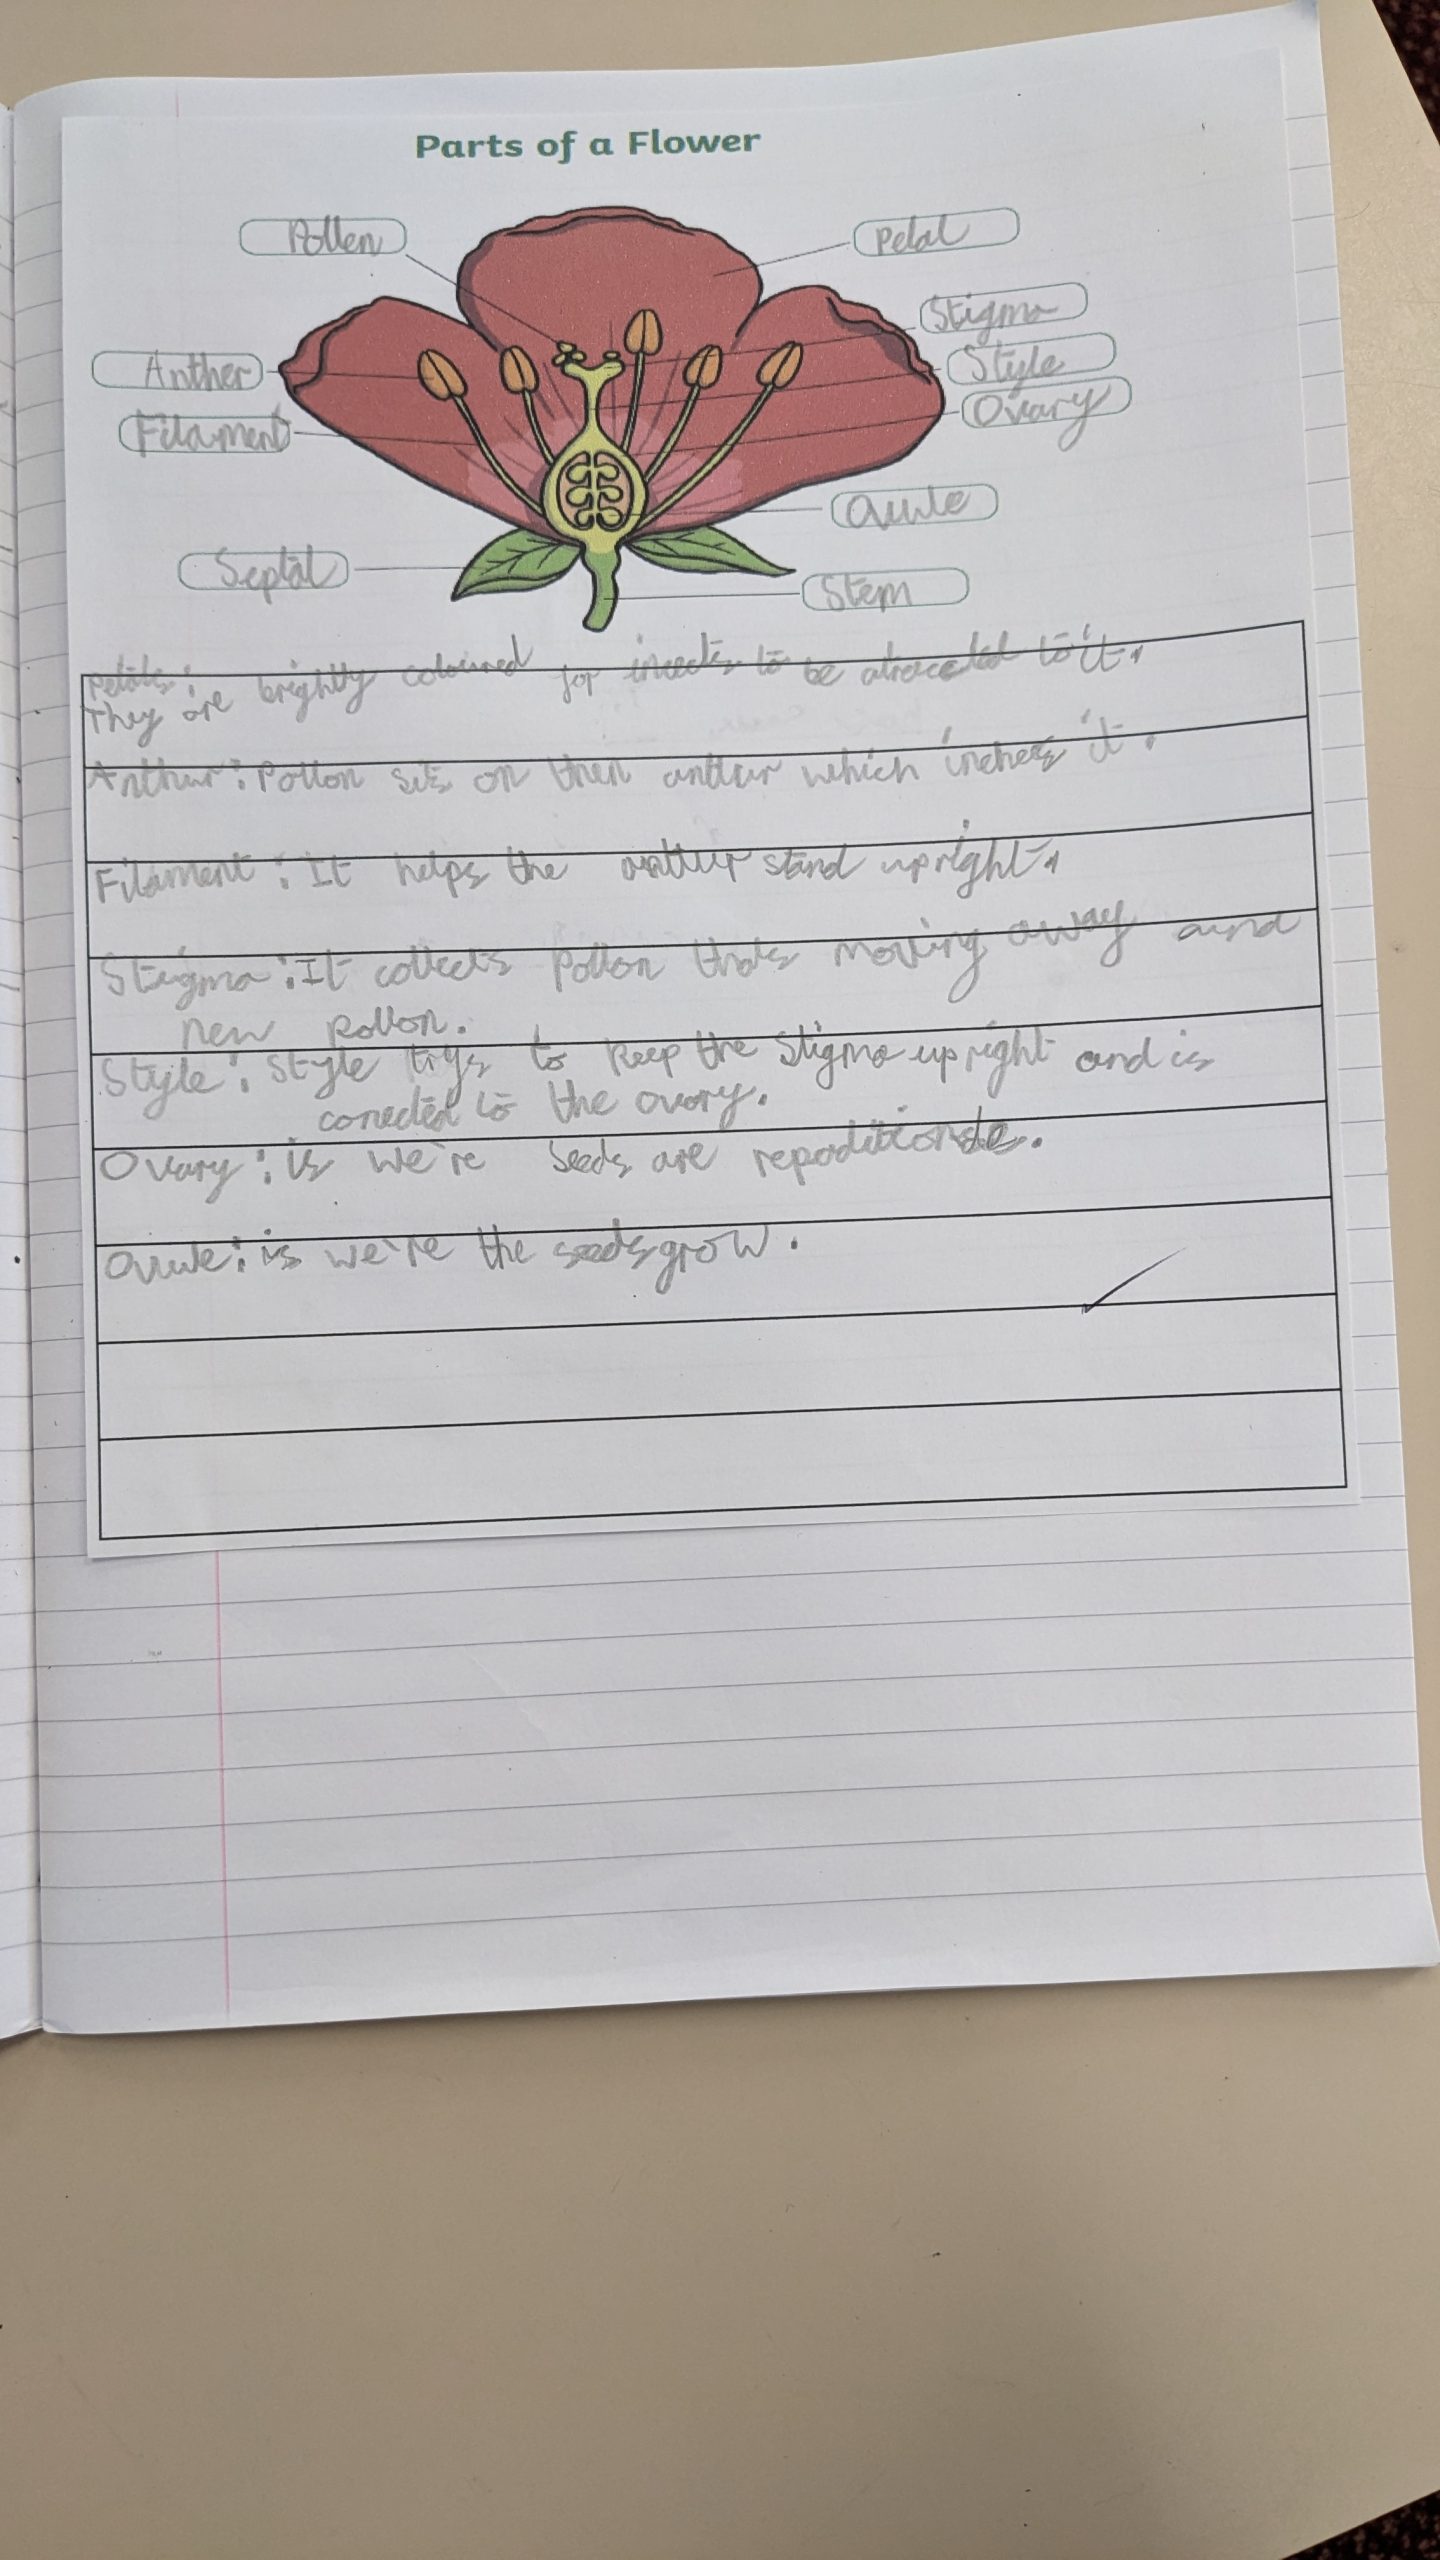 Parts of a Flower
Pollen
Petal
Stigma
Anther
Style
Filament
Ovary
Septal
Stem
Petals:
They are brightly coloured for insects to be to it.
Anthur: Pollon sits on then anthur which it.
Filament: It helps the anthur stand upright.
Stigma: It collects Pollon thats moving away and
new pollon.
Style: Style trys to keep the Stigma upright and is
conected to the ovary.
Ovary: is we're seeds are
is we're the seeds grow.